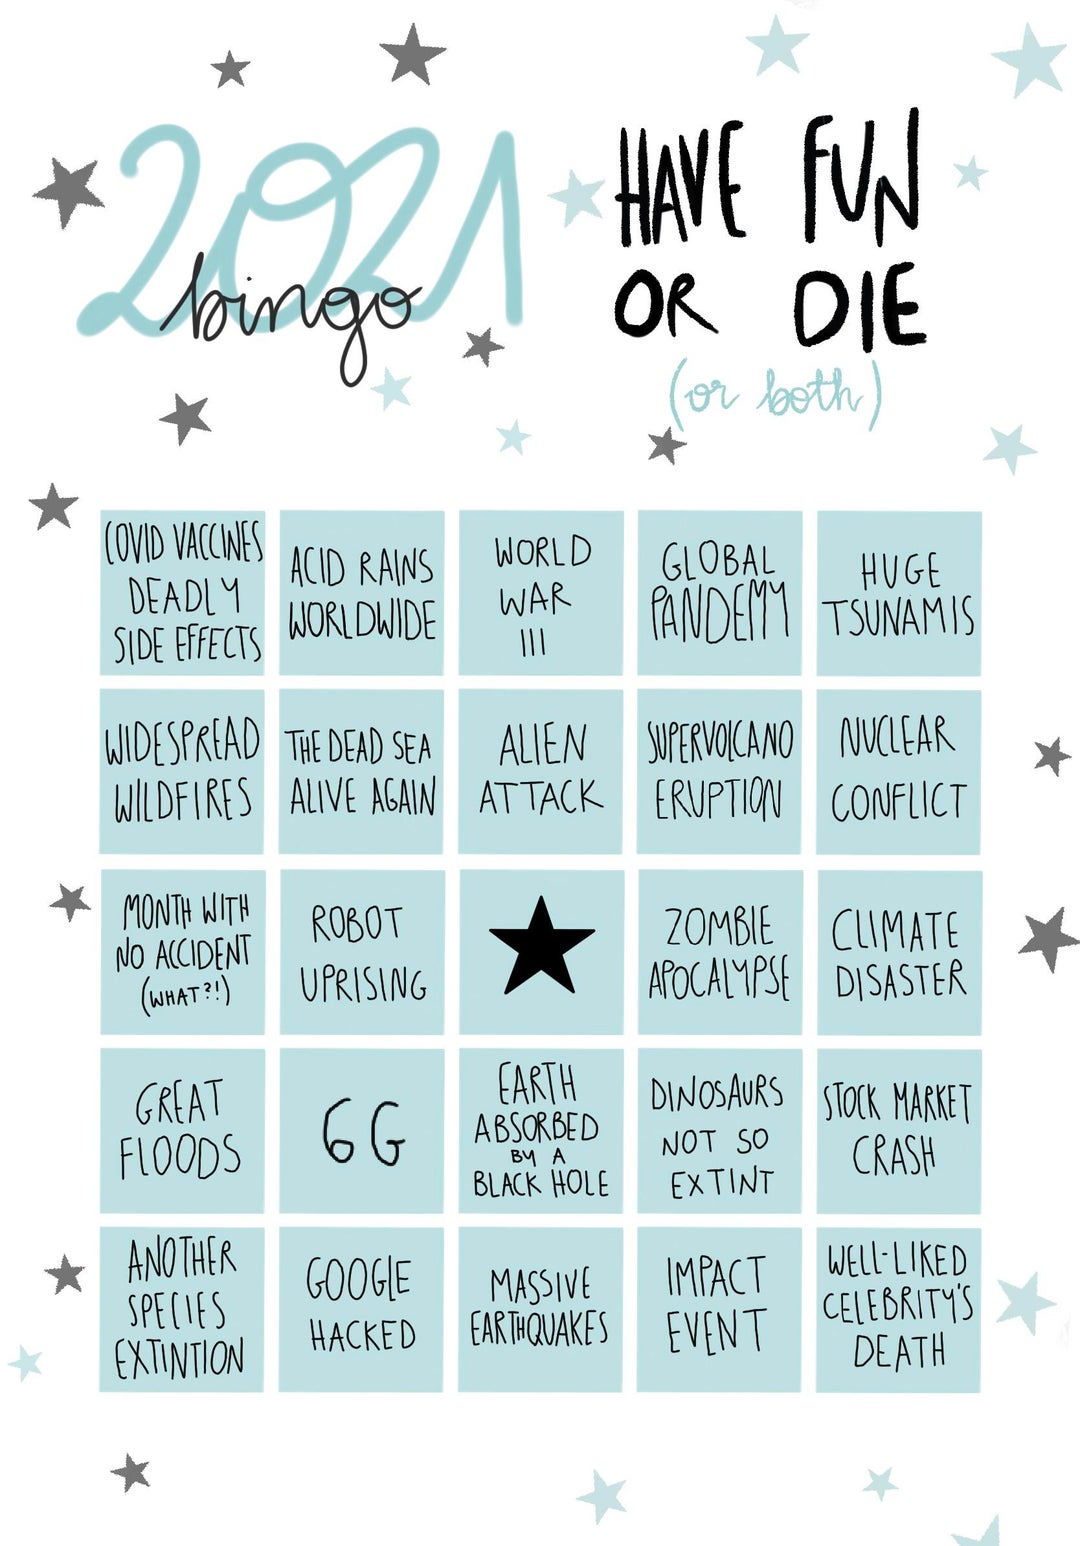 2021
bingo
HAVE FUN
OR DIE
(or both)
COVID VACCINES
DEADLY
SIDE EFFECTS
ACID RAINS
WORLDWIDE
WORLD
WAR
III
GLOBAL
PANDEMY
HUGE
TSUNAMIS
WIDESPREAD
WILDFIRES
THE DEAD SEA
ALIVE AGAIN
ALIEN
ATTACK
SUPERVOLCANO
ERUPTION
NUCLEAR
CONFLICT
MONTH WITH
NO ACCIDENT
(WHAT?!)
ROBOT
UPRISING
ZOMBIE
APOCALYPSE
CLIMATE
DISASTER
GREAT
FLOODS
6G
EARTH
ABSORBED
BY A
BLACK HOLE
DINOSAURS
NOT SO
EXTINT
STOCK MARKET
CRASH
ANOTHER
SPECIES
EXTINTION
GOOGLE
HACKED
MASSIVE
EARTHQUAKES
IMPACT
EVENT
WELL-LIKED
CELEBRITY'S
DEATH